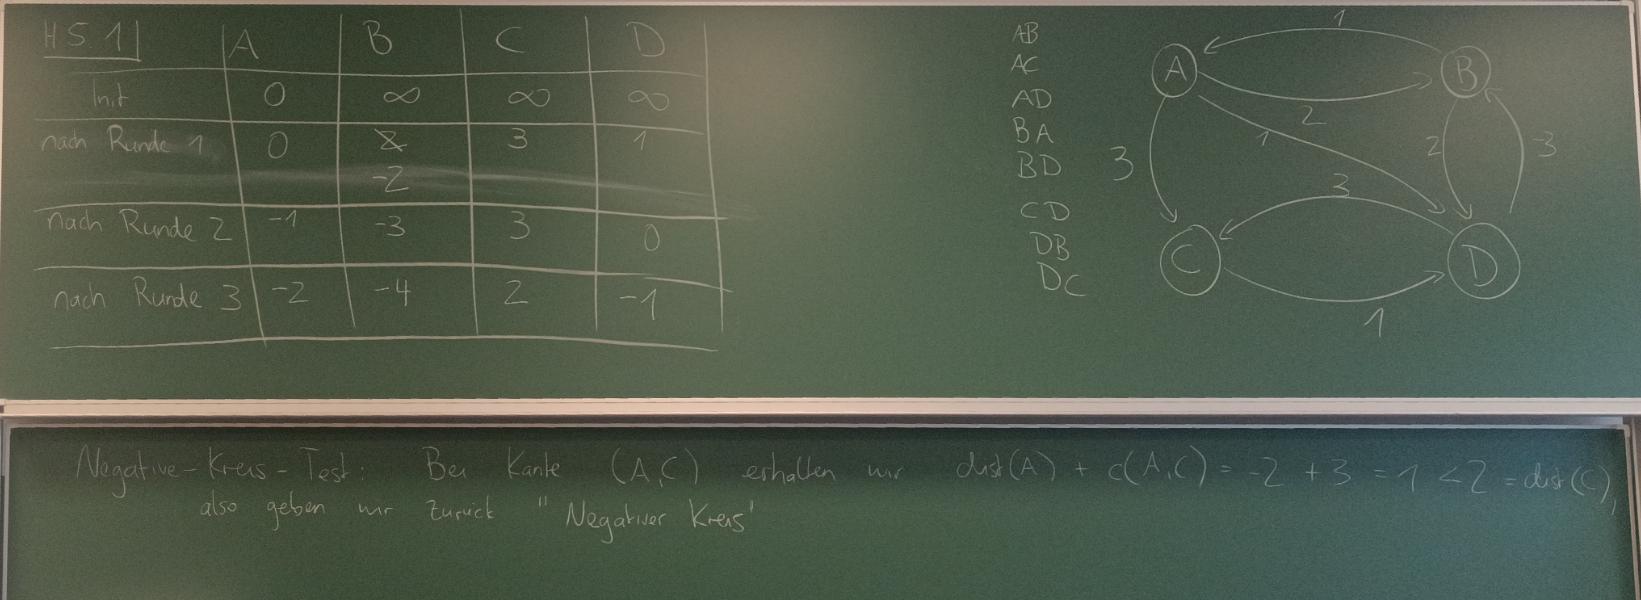 H5.1 A B C D
Init 0 ∞ ∞ ∞
nach Runde 1 0 2 3 1
-2
nach Runde 2 -1 -3 3 0
nach Runde 3 -2 -4 2 -1
AB
AC
AD
BA
BD
CD
DB
DC
1
A B
2
1 2 -3
3
3
C D
1
Negative-Kreis-Test: Bei Kante (A,C) erhalten wir dist(A) + c(A,C) = -2 + 3 = 1 < 2 = dist(C),
also geben wir zurück "Negativer Kreis"